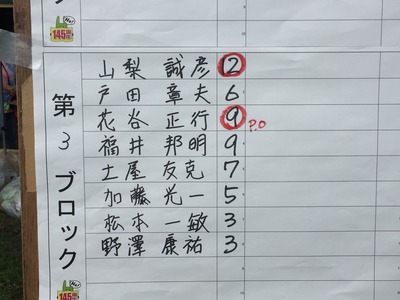 第3ブロック
山梨 誠彦 12
戸田 章夫 6
花谷 正行 9 P.O
福井 邦明 9
土屋 友克 7
加藤 光一 5
松本 一敏 3
野澤 康祐 3
145
145